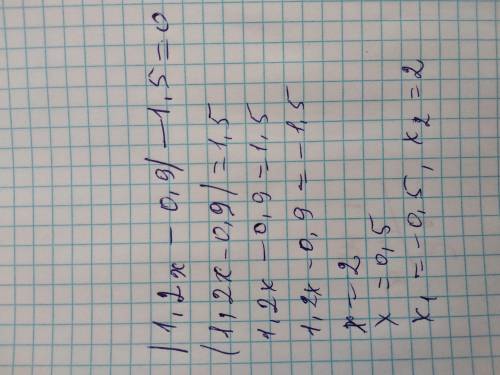 |1,2x - 0,9| - 1,5 = 0
|1,2x - 0,9| = 1,5
1,2x - 0,9 = 1,5
1,2x - 0,9 = -1,5
x = 2
x = 0,5
x₁ = -0,5, x₂ = 2